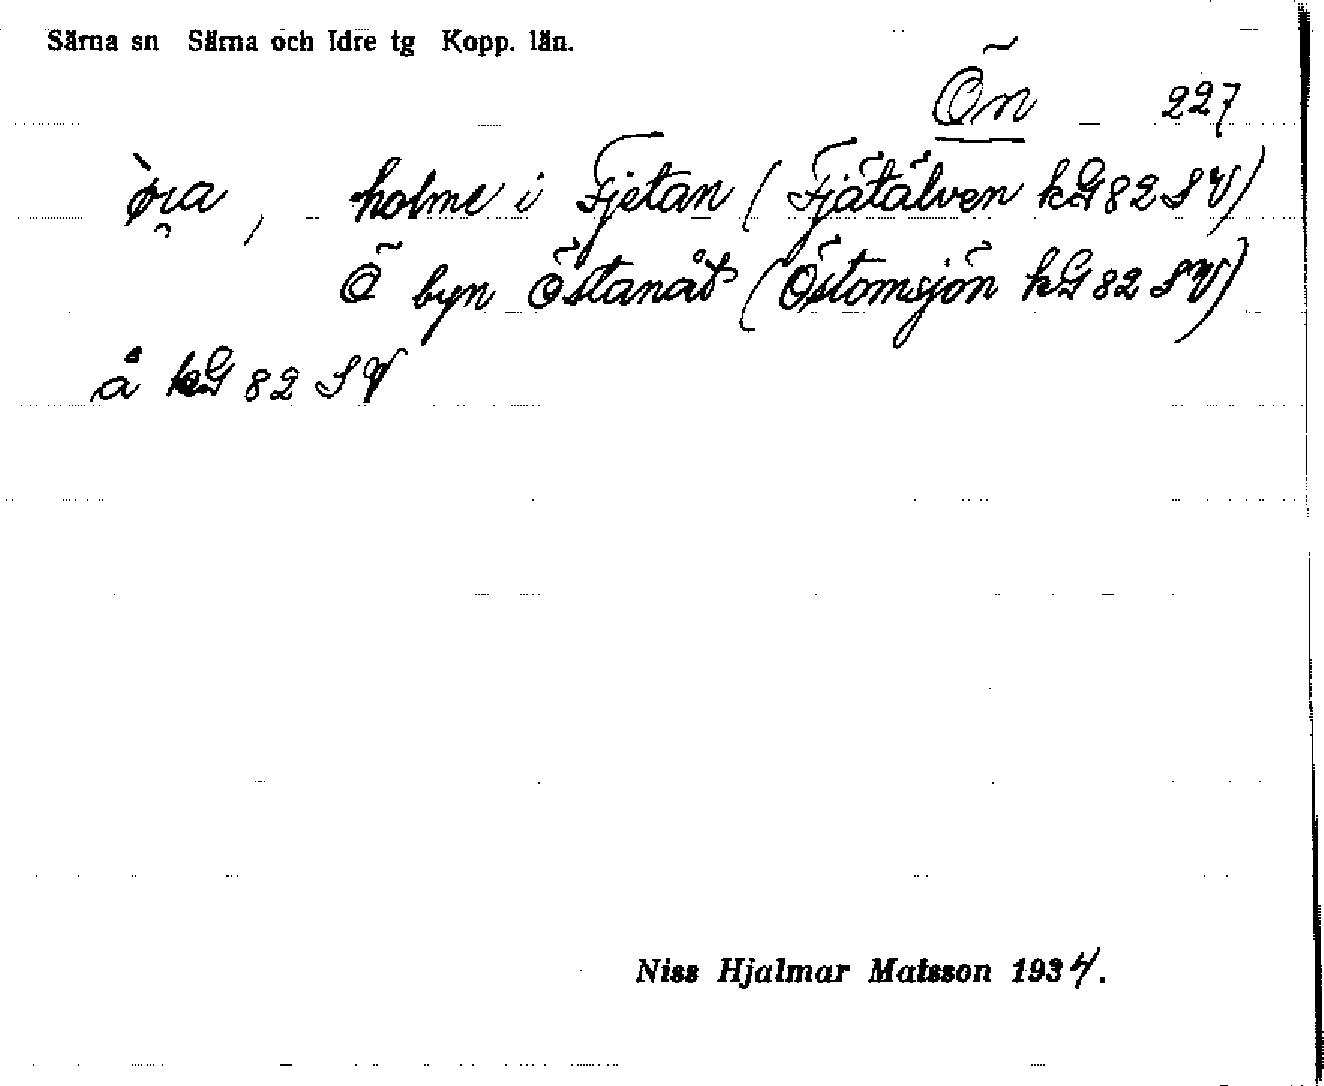 Särna sn Särna och Idre tg Kopp. län.
Ön 227
holme i Fjetan (Fjätälven kG82SV)
Ö byn Östanåt (Östomsjön kG82SV)
å kG 82 SV
Niss Hjalmar Matsson 1934.